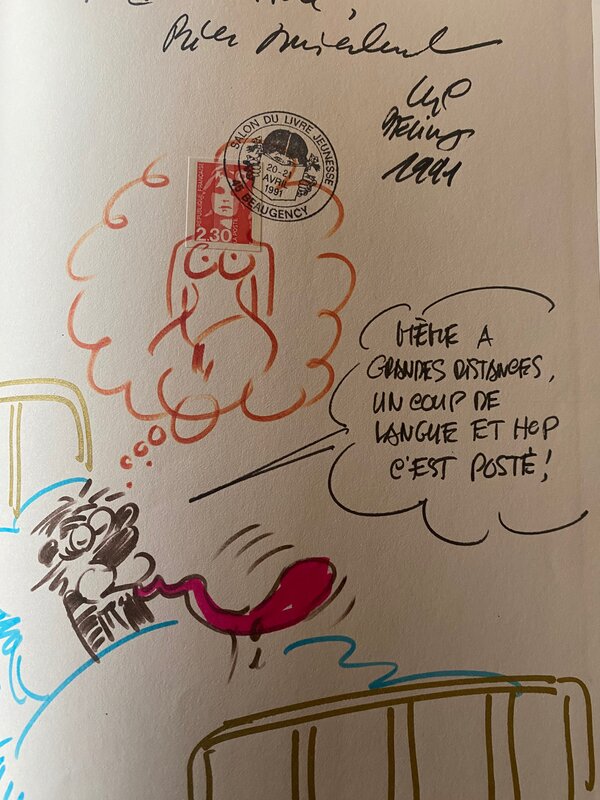 SALON DU LIVRE JEUNESSE
20-21
AVRIL
1991
45 BEAUGENCY
REPUBLIQUE FRANÇAISE
LA POSTE
2,30
1991
MÊME A
GRANDES DISTANCES,
UN COUP DE
LANGUE ET HOP
C'EST POSTÉ!